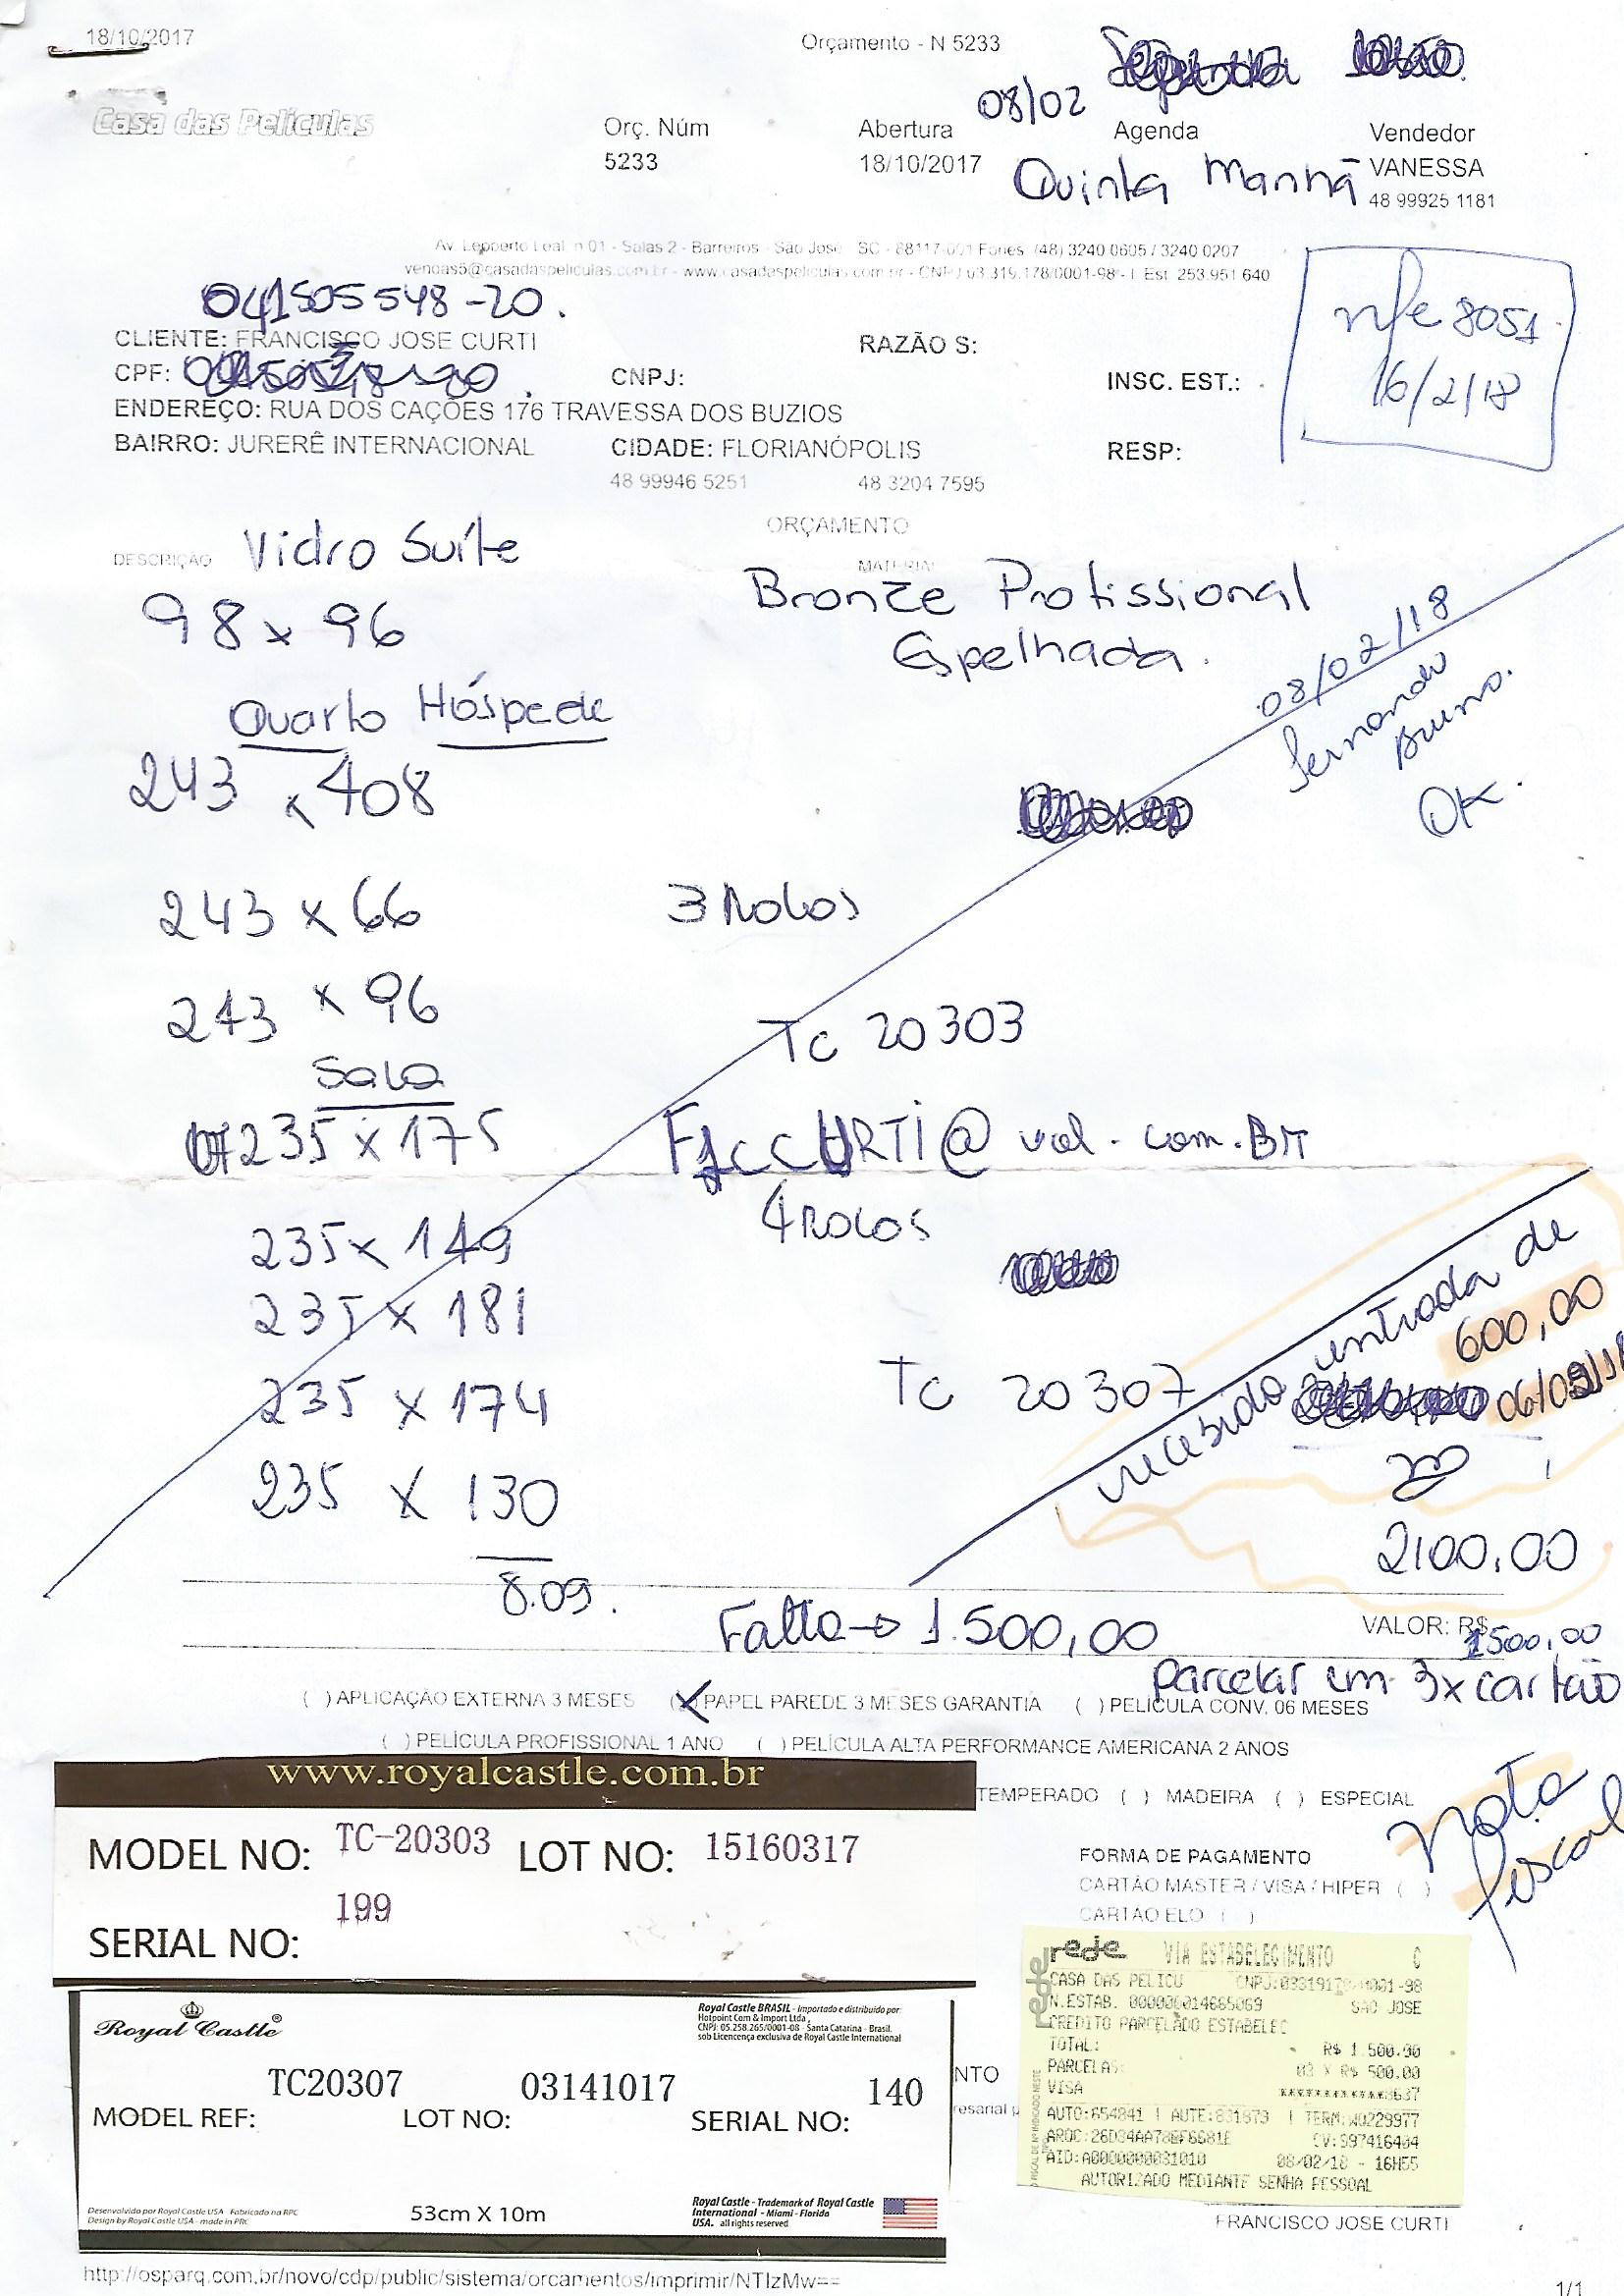 18/10/2017
Orçamento - N 5233
08/02
Casa das Películas
Orç. Núm
Abertura
Agenda
Vendedor
5233
18/10/2017
Quinta Manhã
VANESSA
48 99925 1181
Av. Leoberto Leal, n 01 - Salas 2 - Barreiros - São José - SC - 88117-001 Fones (48) 3240 0605 / 3240 0207
vendas5@casadaspeliculas.com.br - www.casadaspeliculas.com.br - CNPJ 03.319.178/0001-98 - I. Est. 253.951.640
nfe 8051
16/2/18
041505548-20.
CLIENTE: FRANCISCO JOSE CURTI
RAZÃO S:
CPF:
CNPJ:
INSC. EST.:
ENDEREÇO: RUA DOS CAÇÕES 176 TRAVESSA DOS BUZIOS
BAIRRO: JURERÊ INTERNACIONAL
CIDADE: FLORIANÓPOLIS
RESP:
48 99946 5251
48 3204 7595
ORÇAMENTO
DESCRIÇÃO
Vidro Suíte
MATERIAL
98 x 96
Bronze Profissional
Espelhada.
08/02/18
Fernando
Bruno.
OK.
Quarto Hóspede
243 x 408
243 x 66
3 Rolos
243 x 96
TC 20303
Sala
235 x 175
FJCCURTI@uol.com.BR
4 Rolos
235 x 149
235 x 181
235 x 174
TC 20307
235 x 130
8.09.
recebido entrada de
600,00
06/02/18
2100,00
Falta → 1.500,00
VALOR: R$
1500,00
parcelar em 3x cartão
( ) APLICAÇÃO EXTERNA 3 MESES (X) PAPEL PAREDE 3 MESES GARANTIA ( ) PELÍCULA CONV. 06 MESES
( ) PELÍCULA PROFISSIONAL 1 ANO ( ) PELÍCULA ALTA PERFORMANCE AMERICANA 2 ANOS
TEMPERADO ( ) MADEIRA ( ) ESPECIAL
Nota
fiscal
www.royalcastle.com.br
MODEL NO: TC-20303 LOT NO: 15160317
199
SERIAL NO:
FORMA DE PAGAMENTO
CARTÃO MASTER / VISA / HIPER ( )
CARTÃO ELO ( )
Royal Castle®
Royal Castle BRASIL - Importado e distribuído por:
Hotpoint Com & Import Ltda,
CNPJ: 05.258.265/0001-08 - Santa Catarina - Brasil.
sob Licencença exclusiva de Royal Castle International
TC20307
03141017
140
MODEL REF:
LOT NO:
SERIAL NO:
Desenvolvido por Royal Castle USA - Fabricado na RPC
Design by Royal Castle USA - made in PRC
53cm X 10m
Royal Castle - Trademark of Royal Castle
International - Miami - Florida
USA. all rights reserved
NTO
resarial p
rede
VIA ESTABELECIMENTO C
CASA DAS PELICU
N.ESTAB. 000000014665069 SAO JOSE
CREDITO PARCELADO ESTABELEC
TOTAL: R$ 1.500,00
PARCELAS: 03 X R$ 500,00
VISA
AUTO:654841 | AUTE:831873 | TERM:WO229977
CV:997416404
AID:A0000000031010 08/02/18 - 16H55
AUTORIZADO MEDIANTE SENHA PESSOAL
FRANCISCO JOSE CURTI
http://osparq.com.br/novo/cdp/public/sistema/orcamentos/imprimir/NTIzMw==
1/1